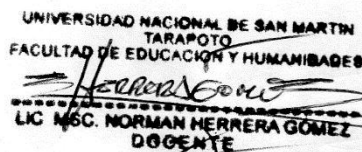 UNIVERSIDAD NACIONAL DE SAN MARTIN
TARAPOTO
FACULTAD DE EDUCACION Y HUMANIDADES
HERRERA GOMEZ
LIC MSC. NORMAN HERRERA GOMEZ
DOCENTE